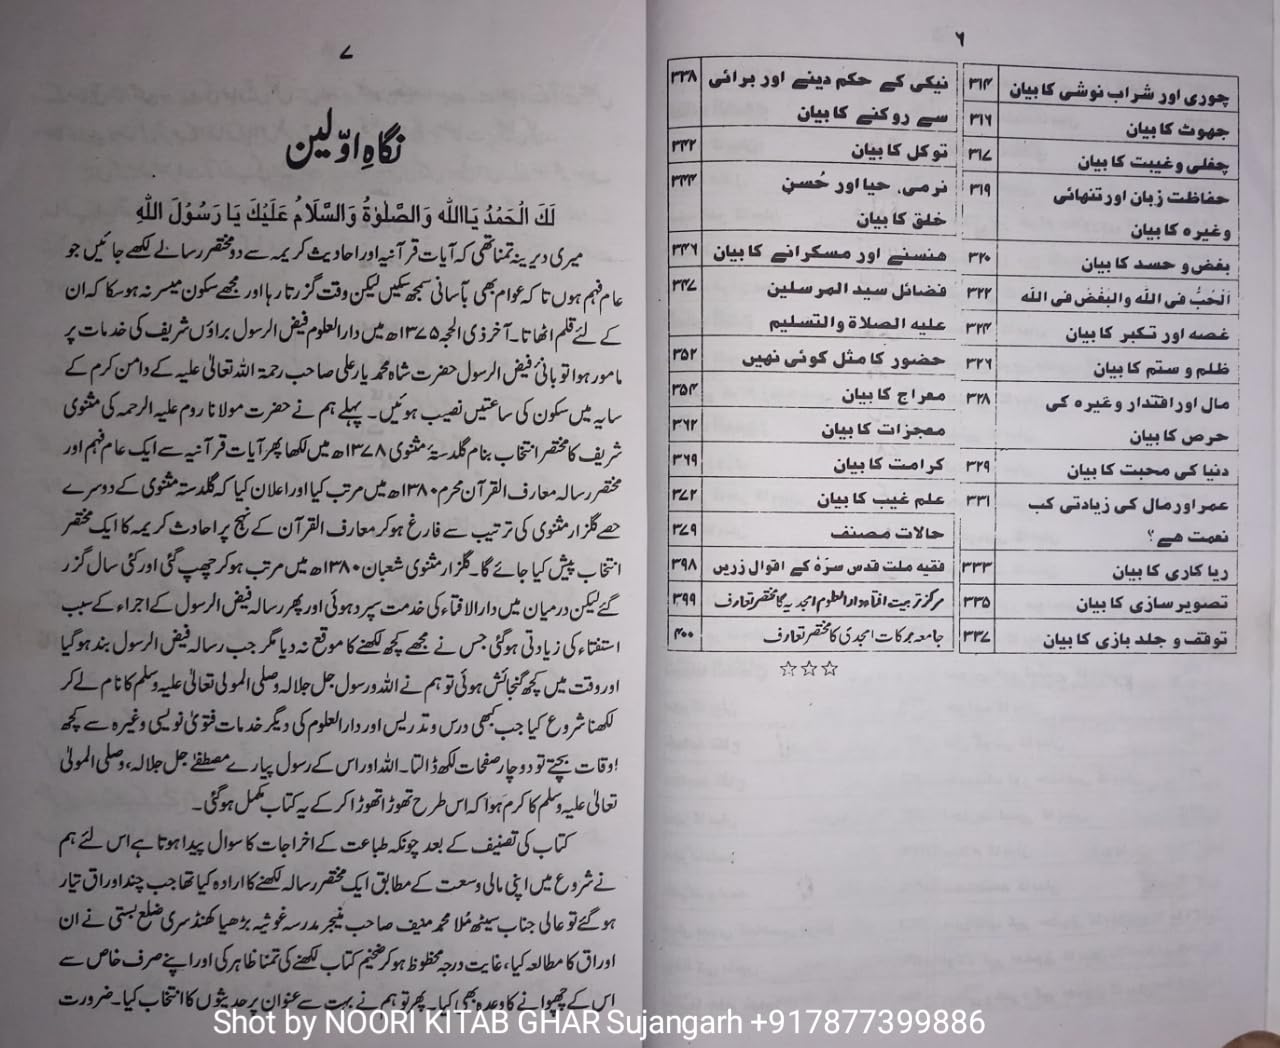 ۶
چوری اور شراب نوشی کا بیان ۳۱۴
جھوٹ کا بیان ۳۱۶
چغلی و غیبت کا بیان ۳۱۷
حفاظت زبان اور تنہائی ۳۱۹
وغیرہ کا بیان
بغض و حسد کا بیان ۳۲۰
اَلْحُبُّ فی اللہ والبَغْض فی اللہ ۳۲۲
غصہ اور تکبر کا بیان ۳۲۴
ظلم و ستم کا بیان ۳۲۶
مال اور اقتدار وغیرہ کی ۳۲۸
حرص کا بیان
دنیا کی محبت کا بیان ۳۲۹
عمر اور مال کی زیادتی کب ۳۳۱
نعمت ھے؟
ریا کاری کا بیان ۳۳۳
تصویر سازی کا بیان ۳۳۵
توقف و جلد بازی کا بیان ۳۳۷
نیکی کے حکم دینے اور برائی ۳۳۸
سے روکنے کا بیان
توکل کا بیان ۳۴۲
نرمی، حیا اور حُسنِ ۳۴۴
خلق کا بیان
ھنسنے اور مسکرانے کا بیان ۳۴۶
فضائل سید المرسلین ۳۴۷
علیہ الصلاۃ والتسلیم
حضور کا مثل کوئی نھیں ۳۵۲
معراج کا بیان ۳۵۴
معجزات کا بیان ۳۶۲
کرامت کا بیان ۳۶۹
علم غیب کا بیان ۳۷۲
حالات مصنف ۳۷۹
فقیہ ملت قدس سرہٗ کے اقوال زریں ۳۹۸
مرکز تربیت افتاء دارالعلوم امجدیہ کا مختصر تعارف ۳۹۹
جامعہ برکات امجدی کا مختصر تعارف ۴۰۰
☆☆☆
۷
نگاہِ اوّلین
لَکَ الْحَمْدُ یَااَللہ وَالصَّلوٰۃُ وَالسَّلَامُ عَلَیْکَ یَا رَسُوْلَ اللہِ
میری دیرینہ تمنا تھی کہ آیات قرآنیہ اور احادیث کریمہ سے دو مختصر رسالے لکھے جائیں جو
عام فہم ہوں تاکہ عوام بھی بآسانی سمجھ سکیں لیکن وقت گزرتا رہا اور مجھے سکون میسر نہ ہوسکا کہ ان
کے لئے قلم اٹھاتا۔ آخر ذی الحجہ ۱۳۷۵ھ میں دارالعلوم فیض الرسول براؤں شریف کی خدمات پر
مامور ہوا تو بانیٔ فیض الرسول حضرت شاہ محمد یار علی صاحب رحمۃ اللہ تعالیٰ علیہ کے دامن کرم کے
سایہ میں سکون کی ساعتیں نصیب ہوئیں۔ پہلے ہم نے حضرت مولانا روم علیہ الرحمہ کی مثنوی
شریف کا مختصر انتخاب بنام گلدستۂ مثنوی ۱۳۷۸ھ میں لکھا پھر آیات قرآنیہ سے ایک عام فہم اور
مختصر رسالہ معارف القرآن محرم ۱۳۸۰ھ میں مرتب کیا اور اعلان کیا کہ گلدستہ مثنوی کے دوسرے
حصے گلزار مثنوی کی ترتیب سے فارغ ہوکر معارف القرآن کے نہج پر احادیث کریمہ کا ایک مختصر
انتخاب پیش کیا جائے گا۔ گلزار مثنوی شعبان ۱۳۸۰ھ میں مرتب ہوکر چھپ گئی اور کئی سال گزر
گئے لیکن درمیان میں دارالافتاء کی خدمت سپرد ہوئی اور پھر رسالہ فیض الرسول کے اجراء کے سبب
استفتاء کی زیادتی ہوگئی جس نے مجھے کچھ لکھنے کا موقع نہ دیا مگر جب رسالہ فیض الرسول بند ہوگیا
اور وقت میں کچھ گنجائش ہوئی تو ہم نے اللہ و رسول جل جلالہ وصلی المولی تعالیٰ علیہ وسلم کا نام لے کر
لکھنا شروع کیا جب کبھی درس و تدریس اور دارالعلوم کی دیگر خدمات فتویٰ نویسی وغیرہ سے کچھ
اوقات بچتے تو دو چار صفحات لکھ ڈالتا۔ اللہ اور اس کے رسول پیارے مصطفےٰ جل جلالہ، وصلی المولیٰ
تعالیٰ علیہ وسلم کا کرم ہوا کہ اس طرح تھوڑا تھوڑا کرکے یہ کتاب مکمل ہوگئی۔
کتاب کی تصنیف کے بعد چونکہ طباعت کے اخراجات کا سوال پیدا ہوتا ہے اس لئے ہم
نے شروع میں اپنی مالی وسعت کے مطابق ایک مختصر رسالہ لکھنے کا ارادہ کیا تھا جب چند اوراق تیار
ہوگئے تو عالی جناب سیٹھ مُلا محمد منیف صاحب منیجر مدرسہ غوثیہ بڑھیا کھنڈسری ضلع بستی نے ان
اوراق کا مطالعہ کیا، غایت درجہ محظوظ ہوکر ضخیم کتاب لکھنے کی تمنا ظاہر کی اور اپنے صرف خاص سے
اس کے چھپوانے کا وعدہ بھی کیا۔ پھر تو ہم نے بہت سے عنوان پر حدیثوں کا انتخاب کیا۔ ضرورت
Shot by NOORI KITAB GHAR Sujangarh +917877399886